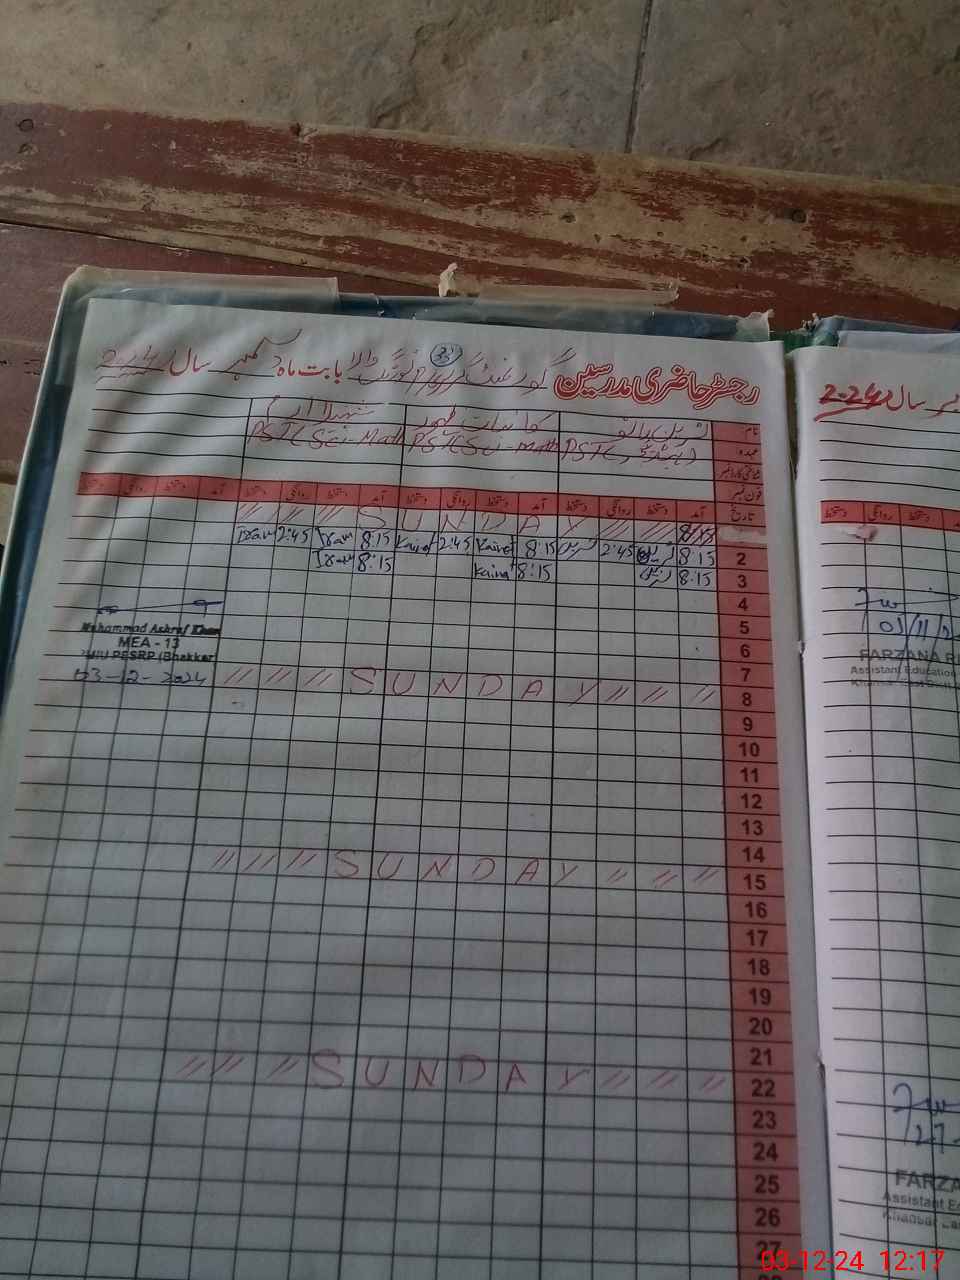 رجسٹر حاضری مدرسین گورنمنٹ بابت ماہ دسمبر سال 2024
33
نام
عہدہ
شناختی کارڈ نمبر
فون نمبر
PST ( PST ( Sci - Math PST ( Sci - Math
تاریخ آمد دستخط روانگی دستخط آمد دستخط روانگی دستخط آمد دستخط روانگی دستخط آمد دستخط روانگی دستخط
SUNDAY
2 8:15 2:45 8:15 Kainat 2:45 Kainat 8:15 Iram 2:45 Iram
3 8:15 8:15 Kainat 8:15 Iram
4
5
6
7
8 SUNDAY
9
10
11
12
13
14
15 SUNDAY
16
17
18
19
20
21
22 SUNDAY
23
24
25
26
27
Muhammad Ashraf Khan
MEA - 13
PMIU PESRP (Bhakkar)
03-12-2024
سال 2024
روانگی دستخط
01/11/2
FARZANA
Assistant Education
27
FARZA
Assistant Ed
Khansar
03-12-24 12:17